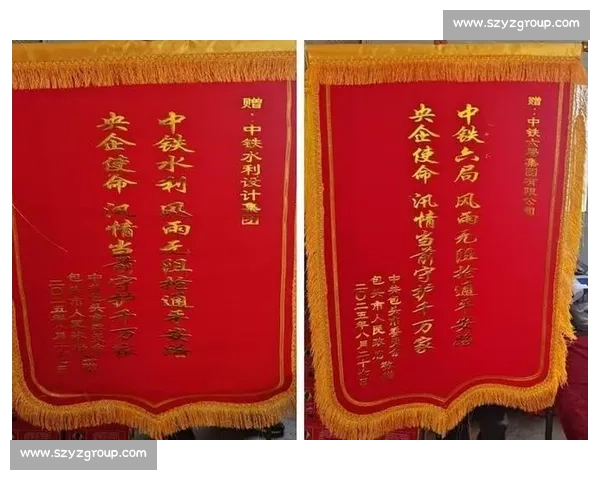 www.szyzgroup.com
赠：中铁水利设计集团
中铁水利 风雨无阻抢通平安路
央企使命 汛情当前守护千万家
包头市人民政府
赠：中铁六局集团有限公司
中铁六局 风雨无阻抢通平安路
央企使命 汛情当前守护千万家
中共包头市委员会
包头市人民政府
二〇二五年八月二十六日
www.szyzgroup.com